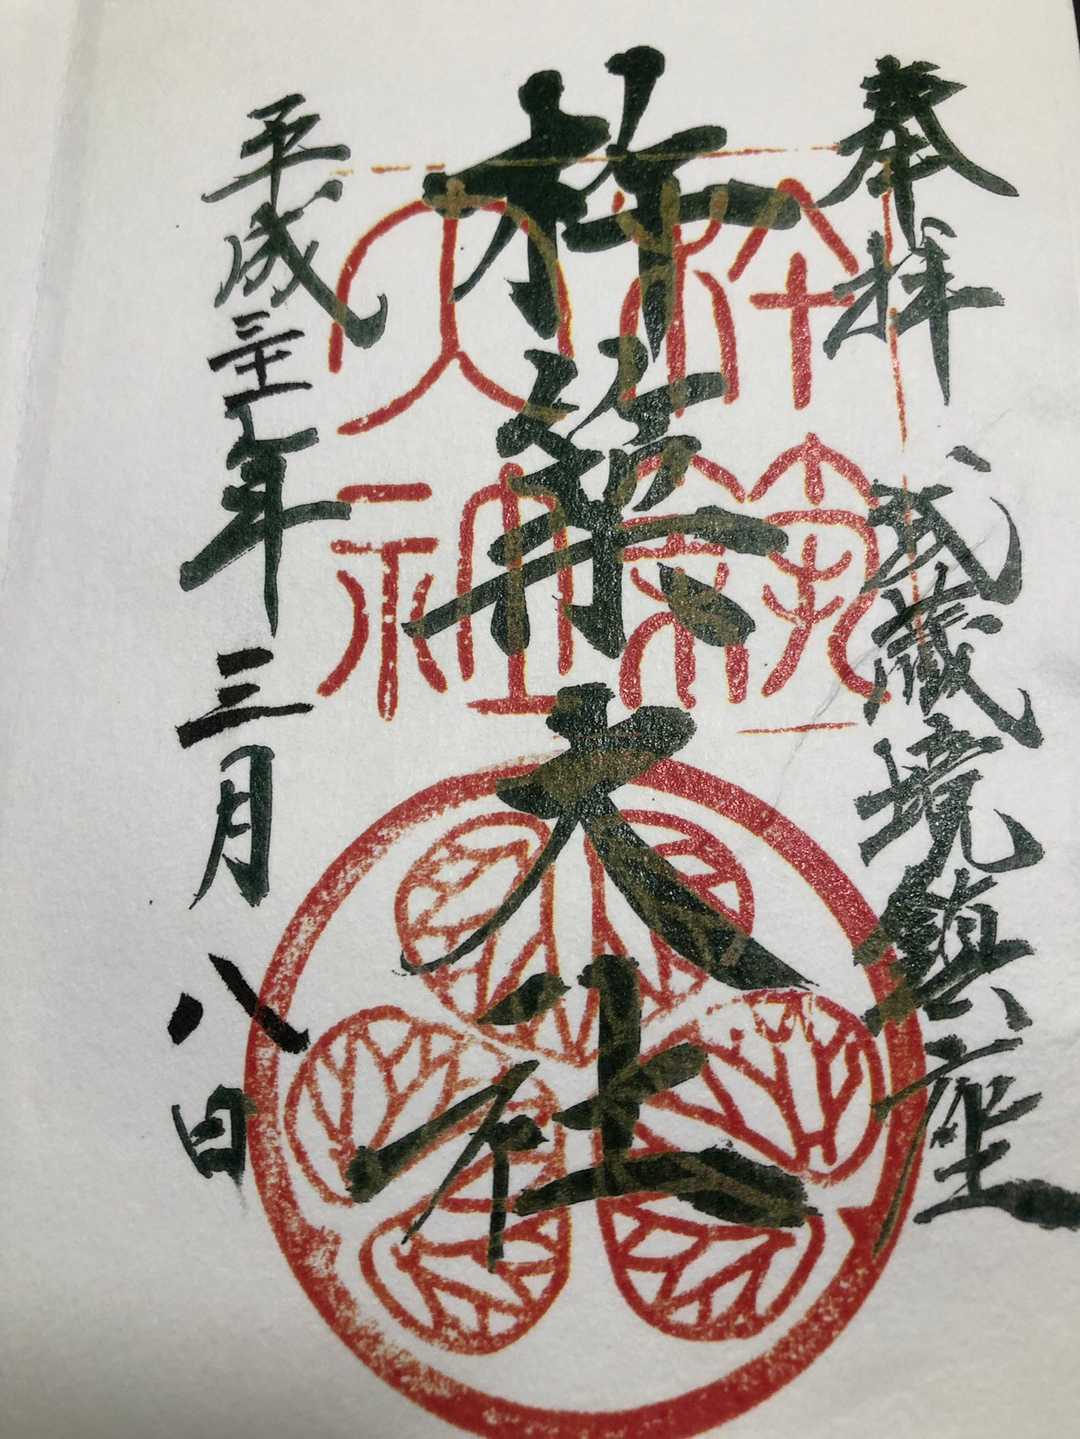 奉拝 武蔵境鎮座
杵築大社
平成三十一年三月八日
杵築
大社